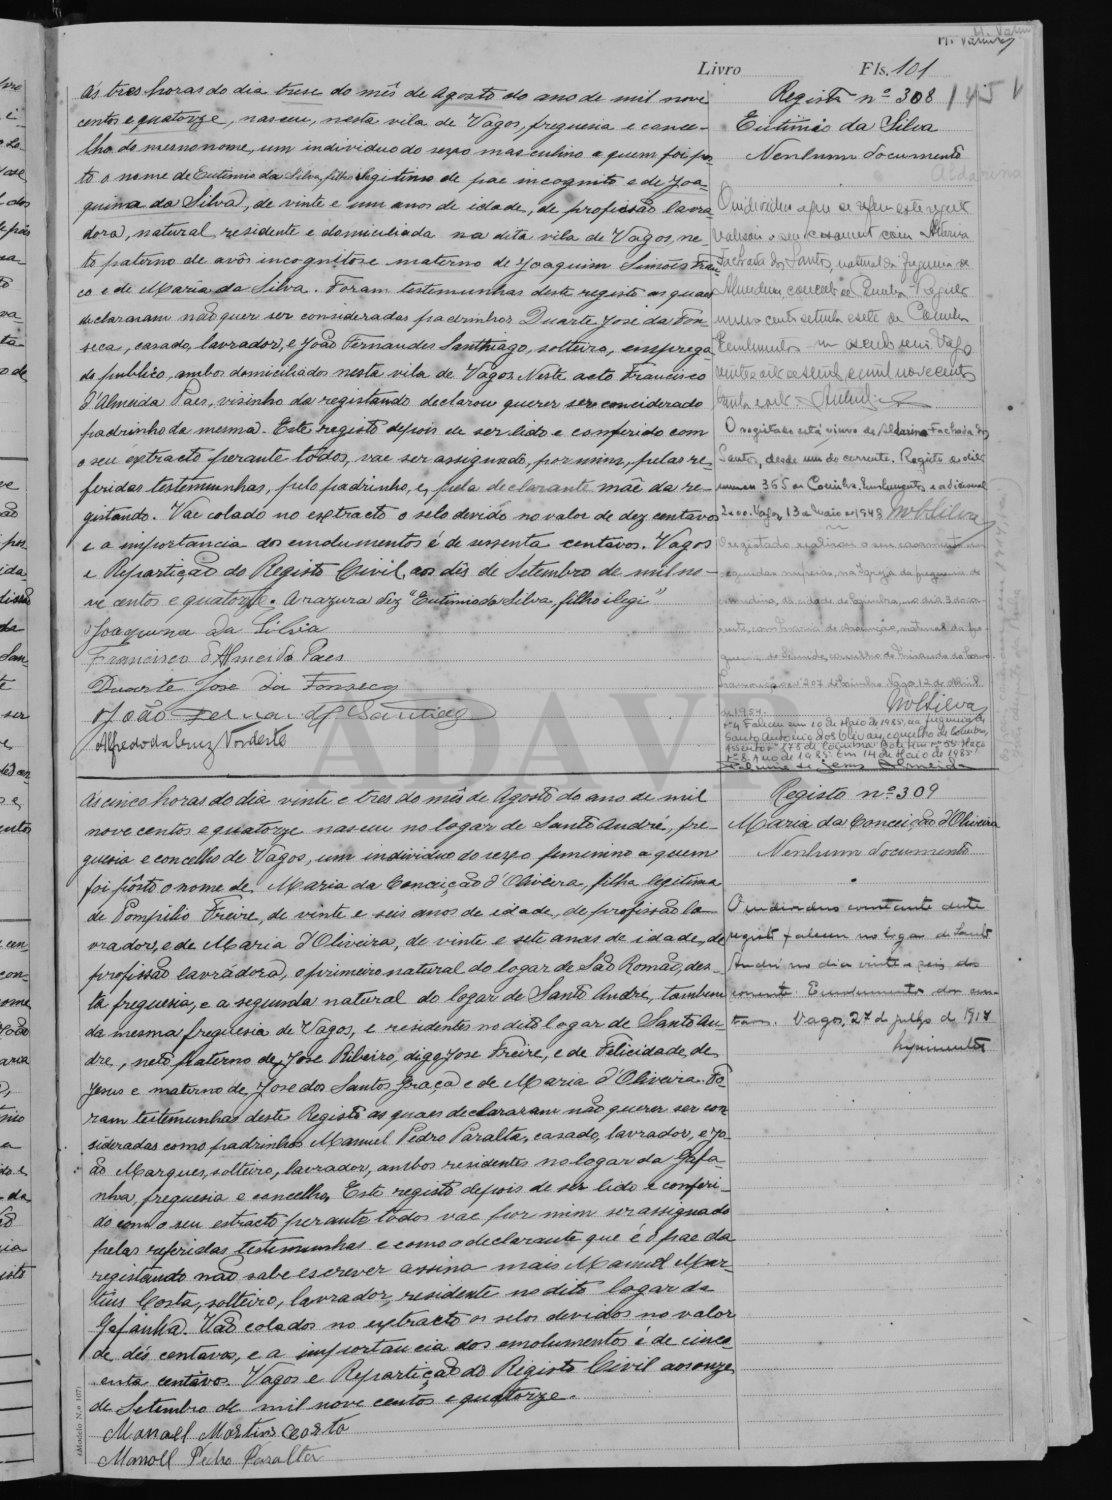 M. Valurio
Livro Fls. 101
Ás tres horas do dia trese do mês de Agosto do ano de mil nove
centos e quatorze, nasceu, nesta vila de Vagos, freguesia e conce-
lho do mesmo nome, um individuo do sexo masculino a quem foi pos
to o nome de Eutimio da Silva, filho ilegitimo de pae incognito e de Joa-
quina da Silva, de vinte e um anos de idade, de profissão lavra
dora, natural, residente e domiciliada na dita vila de Vagos, ne-
to paterno de avôs incognitos e materno de Joaquim Simões
co e de Maria da Silva. Foram testemunhas deste registo as quaes
declararam não quer ser consideradas padrinhos Duarte José da Fon-
seca, casado, lavrador, e João Fernandes Santhiago, solteiro, emprega
do publico, ambos domiciliados nesta vila de Vagos. Neste acto Francisco
d'Almeida Paes, visinho da registando declarou querer ser conciderado
padrinho da mesma. Este registo depois de ser lido e conferido com
o seu extracto perante todos, vae ser assignado, por mim, pelas re-
feridas testemunhas, pelo padrinho, e, pela declarante mãe da re-
gistando. Vae colado no extracto o selo devido no valor de dez centavos
e a importancia dos emolumentos é de sessenta centavos. Vagos
e Repartição do Registo Civil, aos dês de Setembro de mil no-
ve centos e quatorze. A razura diz "Eutimio da Silva, filho ilegi"
Joaquina da Silvia
Francisco d'Almeida Paes
Duarte José da Fonseca
João Fernandes Santiago
Alfredo da Cruz Nordeste
Registo nº 308
145
Eutimio da Silva
Nenhum documento
Aldarina
O individuo a que se refere este registo
realisou o seu casamento com Aldarina
Fachada dos Santos, natural da freguesia de
Almedina concelho de Coimbra. Registo
Emolumentos
O registado está viuvo de Aldarina Fachada dos
Santos, desde um do corrente. Registo de obito
numero 365 de Coimbra. Emolumentos e adicional
2$00. Vagos, 13 de Maio de 1948 MolSilva
O registado realisou o seu casamento em
segundas nupcias, na Igreja da freguesia de
Almedina, da cidade de Coimbra, no dia 3 do cor-
rente, com de Assunção, natural da fre-
guesia de Semide, concelho de Miranda do Corvo.
Transcrição nº 207 de Coimbra. Vagos 12 de Abril
de 1954. MolSilva
nº 4 Faleceu em 10 de Maio de 1985, na freguesia de
Santo Antonio dos Olivais, concelho de Coimbra,
assento nº 175 de Coimbra. Boletim nº 55. Maço
nº 8. Ano de 1985. Em 14 de Maio de 1985.
de Jesus Almeida
ADAVR
Ás cinco horas do dia vinte e tres do mês de Agosto do ano de mil
nove centos e quatorze nasceu no logar de Santo André, fre-
guesia e concelho de Vagos, um individuo do sexo feminino a quem
foi pôsto o nome de Maria da Conceição d'Oliveira, filha legitima
de Pompilio Freire, de vinte e seis anos de idade, de profissão la-
vrador, e de Maria d'Oliveira, de vinte e sete anos de idade, de
profissão lavradora, o primeiro natural do logar de São Romão, des-
ta freguesia, e a segunda natural do logar de Santo André, tambem
da mesma freguesia de Vagos, e residentes no dito logar de Santo An-
dre, neto paterno de José Ribeiro, digo José Freire, e de Felicidade de
Jesus e materno de José dos Santos Graça e de Maria d'Oliveira. Fo-
ram testemunhas deste Registo as quaes declararam não querer ser con
sideradas como padrinhos Manuel Pedro Paralta, casado, lavrador, e Jo-
ão Marques, solteiro, lavrador, ambos residentes no logar da Gafa-
nha, freguesia e concelho. Este registo depois de ser lido e conferi-
do com o seu estracto perante todos vae por mim ser assignado
pelas referidas testemunhas e como o declarante que é o pae da
registando não sabe escrever assina mais Manuel Mar-
tins Costa, solteiro, lavrador, residente no dito logar da
Gafanha. Vão colados no extracto os selos devidos no valor
de dês centavos, e a importancia dos emolumentos é de cinco
enta centavos. Vagos e Repartição do Registo Civil aos onze
de Setembro de mil nove centos e quatorze.
Manoell Martins Costa
Manoell Pedro Paralta
Registo nº 309
Maria da Conceição d'Oliveira
Nenhum documento
O individuo constante deste
registo faleceu no logar de Santo
André no dia vinte e seis do
corrente. Emolumentos dez cen-
tavos. Vagos, 27 de julho de 1917
(Modelo N.º 107)